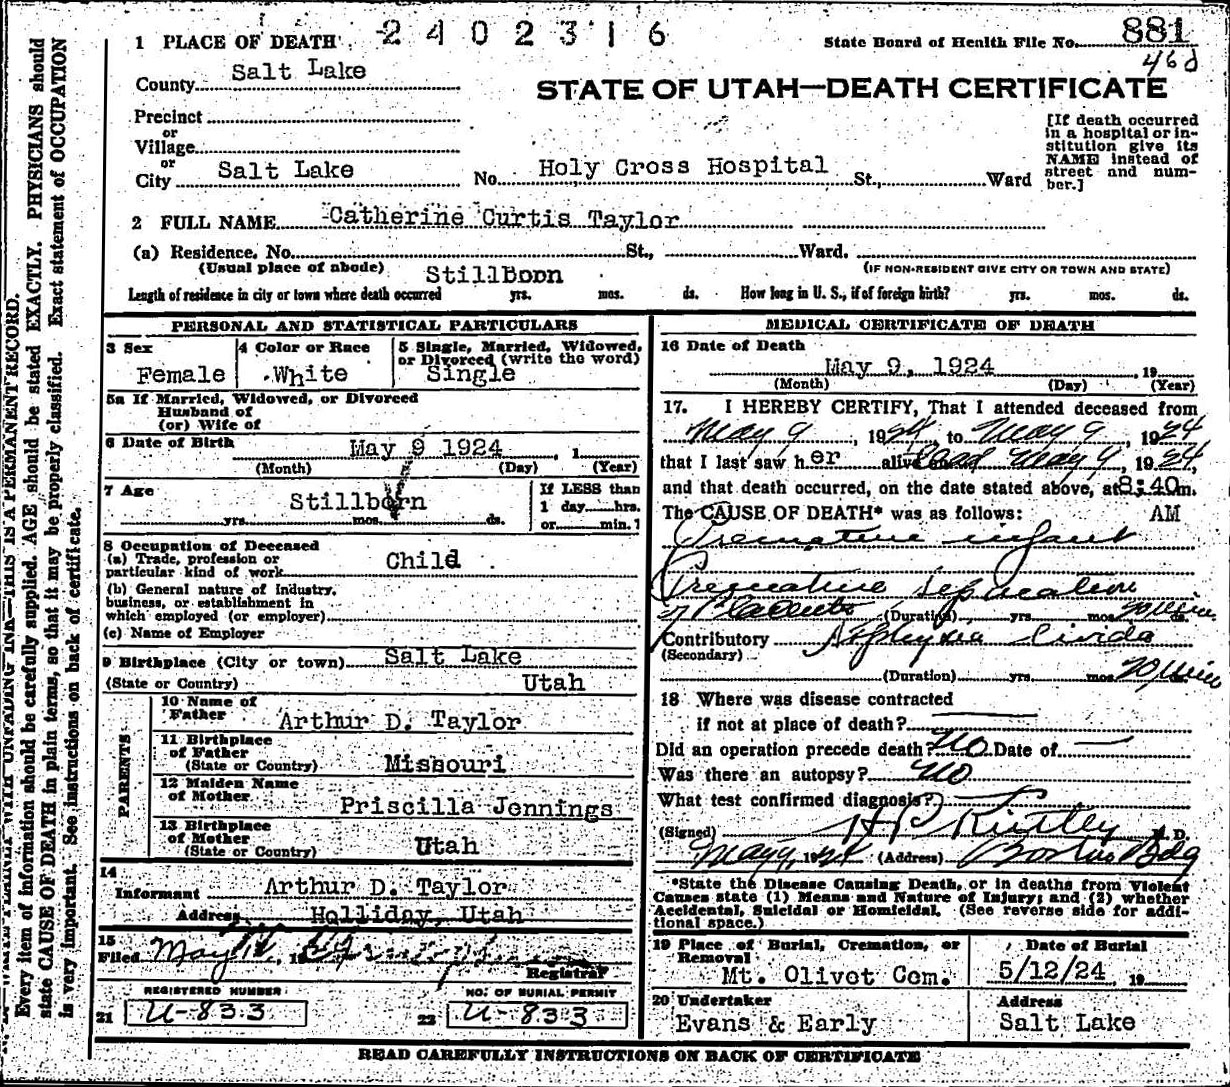 2402316
1 PLACE OF DEATH
State Board of Health File No. 881
46d
County Salt Lake
STATE OF UTAH—DEATH CERTIFICATE
Precinct
or
Village
or
City Salt Lake No. Holy Cross Hospital St., Ward
[If death occurred
in a hospital or in-
stitution give its
NAME instead of
street and num-
ber.]
2 FULL NAME Catherine Curtis Taylor
(a) Residence. No. St., Ward.
(Usual place of abode) (IF NON-RESIDENT GIVE CITY OR TOWN AND STATE)
Stillborn
Length of residence in city or town where death occurred yrs. mos. ds. How long in U. S., if of foreign birth? yrs. mos. ds.
PERSONAL AND STATISTICAL PARTICULARS
3 Sex
Female
4 Color or Race
White
5 Single, Married, Widowed,
or Divorced (write the word)
Single
5a If Married, Widowed, or Divorced
Husband of
(or) Wife of
6 Date of Birth May 9 1924 , 1
(Month) (Day) (Year)
7 Age
Stillborn
yrs. mos. ds.
If LESS than
1 day hrs.
or min.?
8 Occupation of Deceased
(a) Trade, profession or
particular kind of work Child
(b) General nature of industry,
business, or establishment in
which employed (or employer)
(c) Name of Employer
9 Birthplace (City or town) Salt Lake
(State or Country) Utah
PARENTS
10 Name of
Father Arthur D. Taylor
11 Birthplace
of Father
(State or Country) Missouri
12 Maiden Name
of Mother Priscilla Jennings
13 Birthplace
of Mother
(State or Country) Utah
14
Informant Arthur D. Taylor
Address Holliday, Utah
15
Filed May
Registrar
REGISTERED NUMBER
21 U-833
NO. OF BURIAL PERMIT
22 U-833
MEDICAL CERTIFICATE OF DEATH
16 Date of Death
May 9, 1924 , 19
(Month) (Day) (Year)
17. I HEREBY CERTIFY, That I attended deceased from
May 9, 1924, to May 9, 1924
that I last saw her alive dead May 9, 1924,
and that death occurred, on the date stated above, at 8:40 m.
AM
The CAUSE OF DEATH* was as follows:
Premature infant
Premature separation
of Placenta (Duration) yrs. mos. 20 min ds.
Contributory Asphyxia Livida
(Secondary)
(Duration) yrs. mos. 20 min
18 Where was disease contracted
if not at place of death?
Did an operation precede death? No Date of
Was there an autopsy? No
What test confirmed diagnosis?
(Signed) H P Kirtley M. D.
May 9, 1924 (Address) Boston Bdg
*State the Disease Causing Death, or in deaths from Violent
Causes state (1) Means and Nature of Injury; and (2) whether
Accidental, Suicidal or Homicidal. (See reverse side for addi-
tional space.)
19 Place of Burial, Cremation, or
Removal
Mt. Olivet Cem.
Date of Burial
5/12/24 19
20 Undertaker
Evans & Early
Address
Salt Lake
READ CAREFULLY INSTRUCTIONS ON BACK OF CERTIFICATE
WRITE PLAINLY WITH UNFADING INK—THIS IS A PERMANENT RECORD.
Every item of information should be carefully supplied. AGE should be stated EXACTLY. PHYSICIANS should
state CAUSE OF DEATH in plain terms, so that it may be properly classified. Exact statement of OCCUPATION
is very important. See instructions on back of certificate.